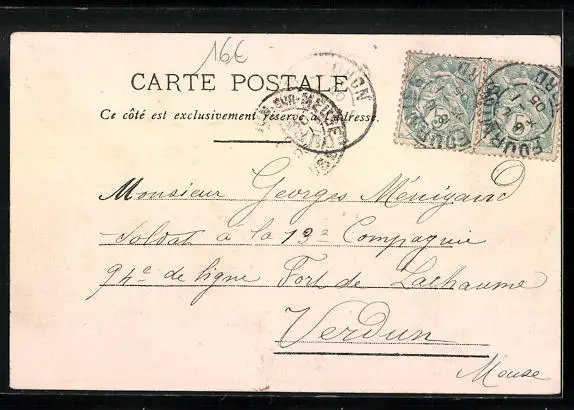 16€
CARTE POSTALE
Ce côté est exclusivement réservé à l'adresse.
Monsieur Georges
Soldat à la 13e Compagnie
94e de ligne Fort de Lachaume
Verdun
Meuse